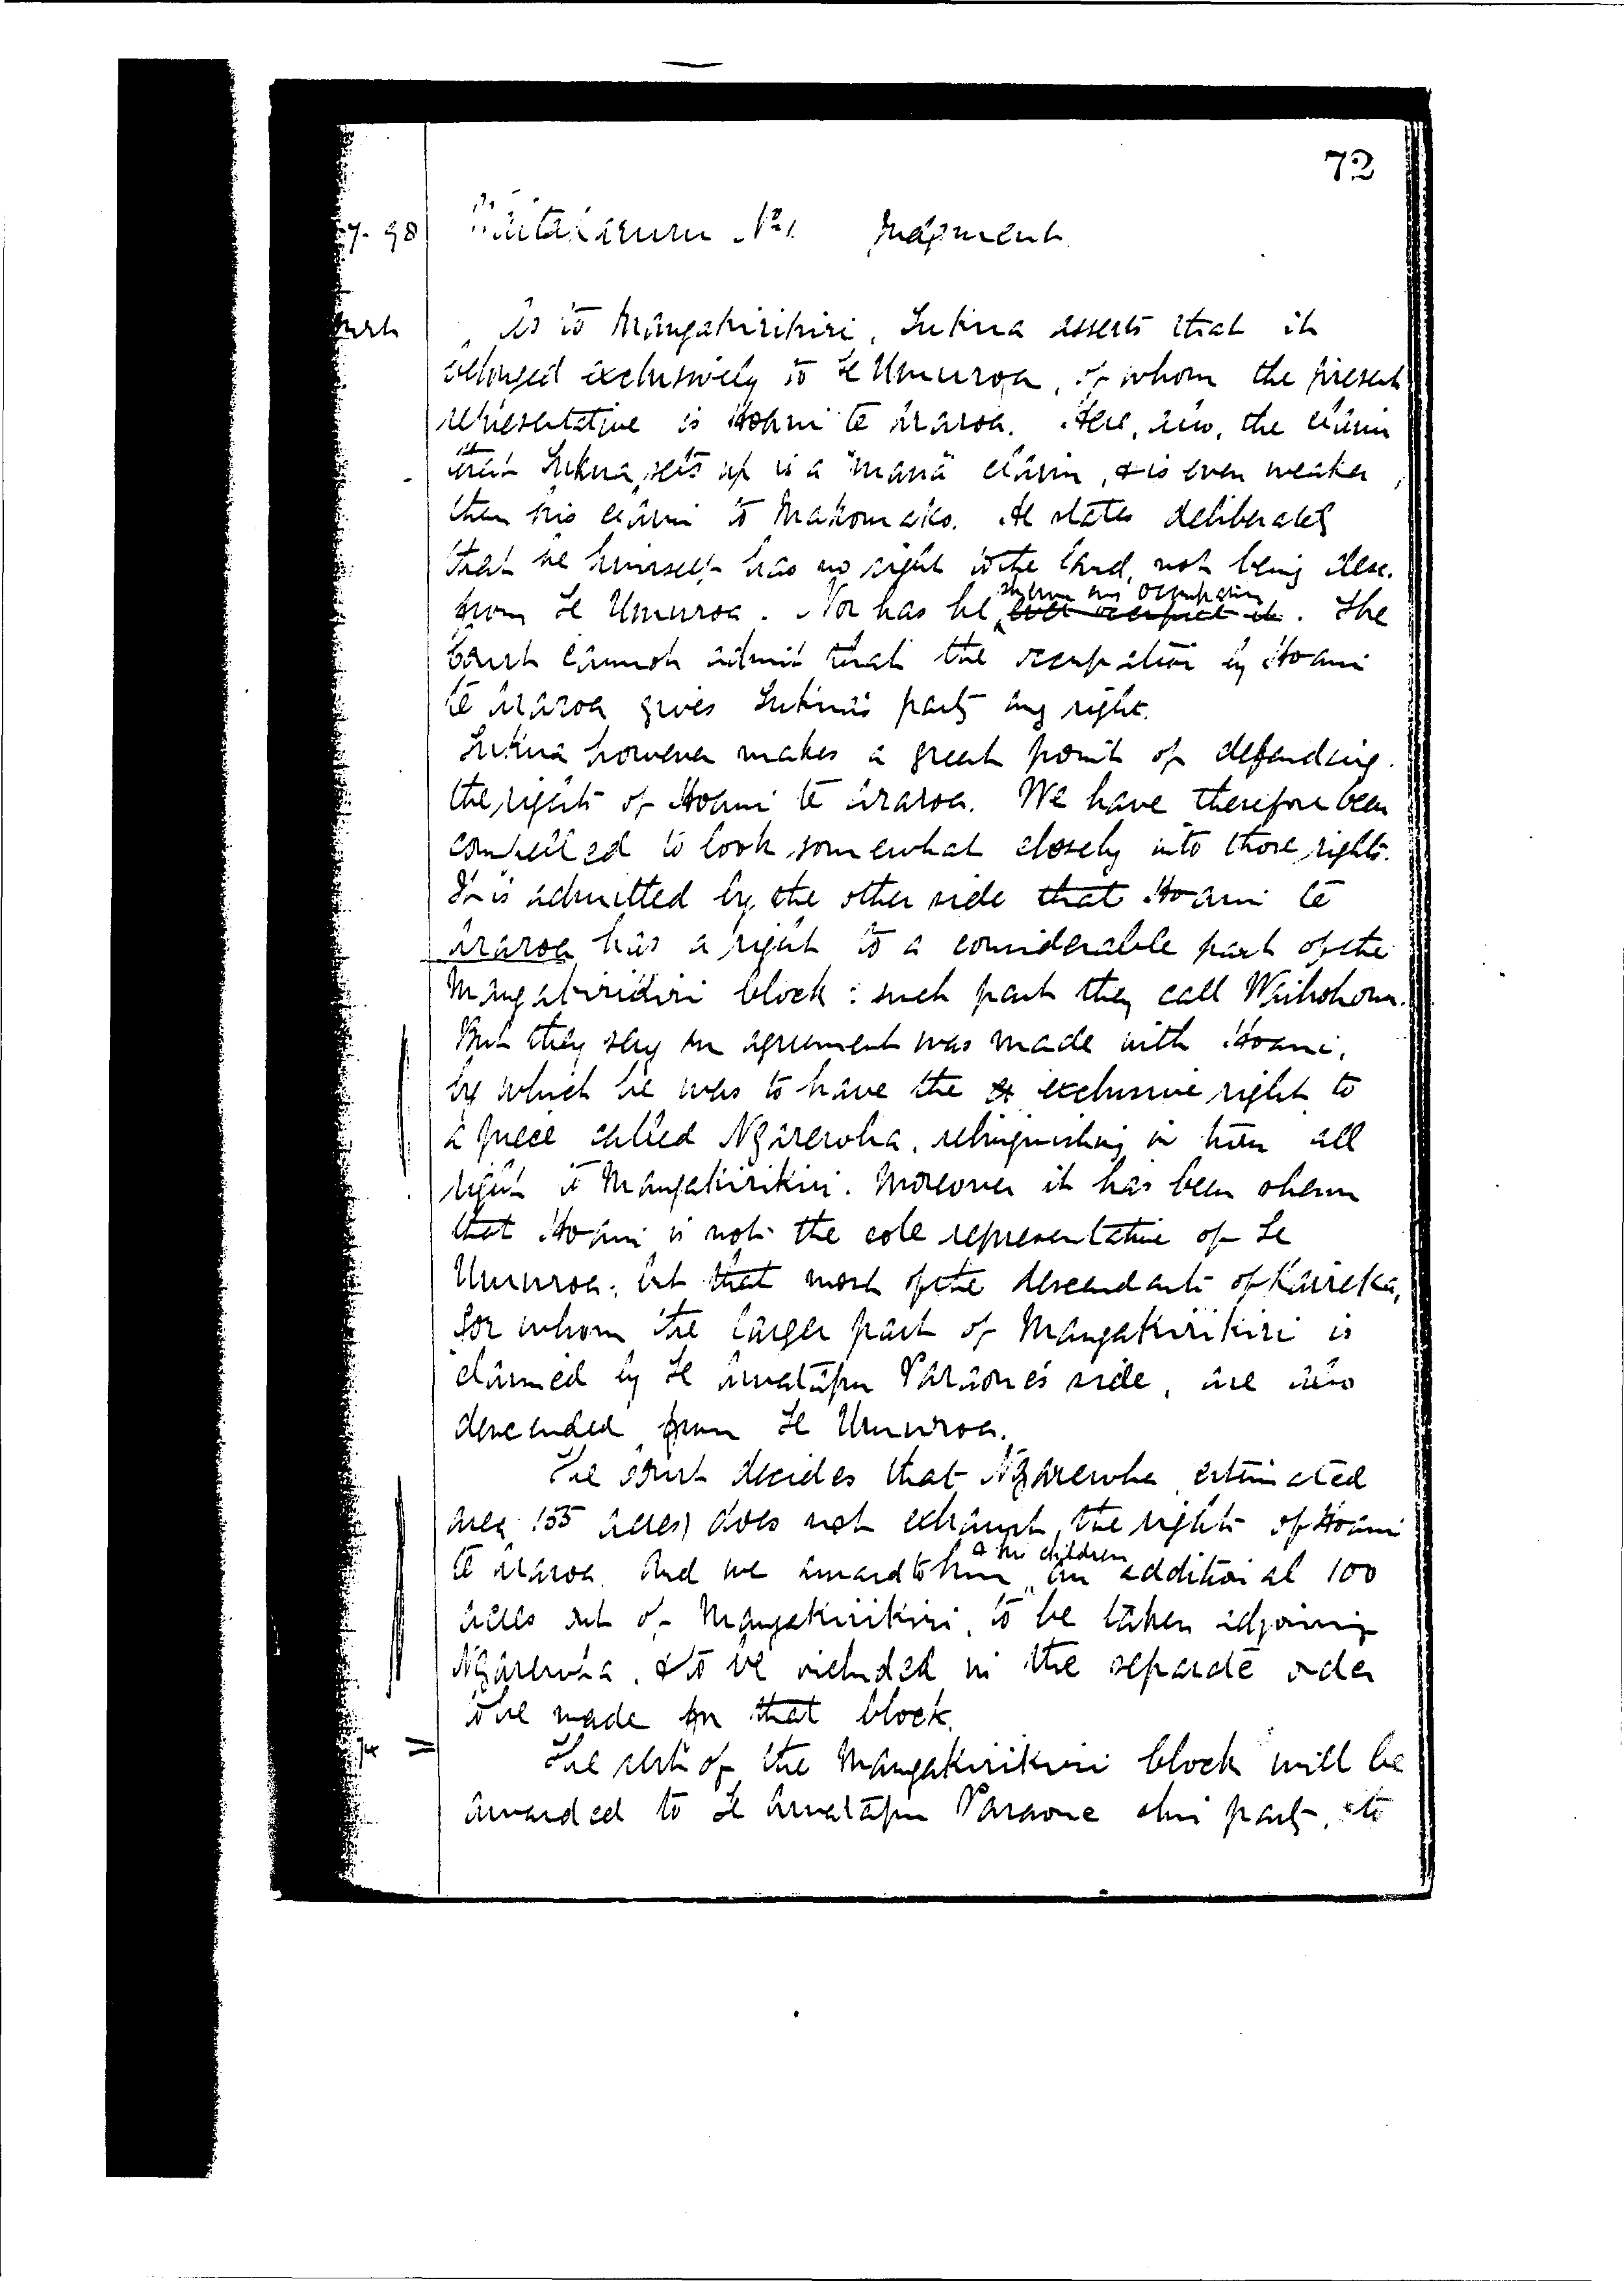 72
7. 98 No 1. Judgment
As to Mangakirikiri, Tutua asserts that it
belonged exclusively to Te Umuroa, of whom the present
representative is Hoani te Araroa. Here, also, the claim
that Tutua sets up is a "mana" claim, & is even weaker
than his claim to Makomako. He states deliberately
that he himself has no right to the land, not being desc.
from Te Umuroa. Nor has he shewn any occupation ever occupied it. The
Court cannot admit that the occupation by Hoani
te Araroa gives Tutua's party any right.
Tutua however makes a great point of defending
the rights of Hoani te Araroa. We have therefore been
compelled to look somewhat closely into those rights.
It is admitted by the other side that Hoani te
Araroa has a right to a considerable part of the
Mangakirikiri block: such part they call
But they say an agreement was made with Hoani,
by which he was to have the exclusive right to
a piece called Ngarewha, relinquishing in turn all
right to Mangakirikiri. Moreover it has been shewn
that Hoani is not the sole representative of Te
Umuroa; but that most of the descendants of Kaireka,
for whom the larger part of Mangakirikiri is
claimed by Te Awatapu Paraone's side, are also
descended from Te Umuroa.
The Court decides that Ngarewha estimated
area 155 acres) does not exhaust the rights of Hoani
te Araroa. And we award to him & his children an additional 100
acres out of Mangakirikiri, to be taken adjoining
Ngarewha, & to be included in the separate order
to be made for that block.
The rest of the Mangakirikiri block will be
awarded to Te Awatapu Paraone & his party, & to